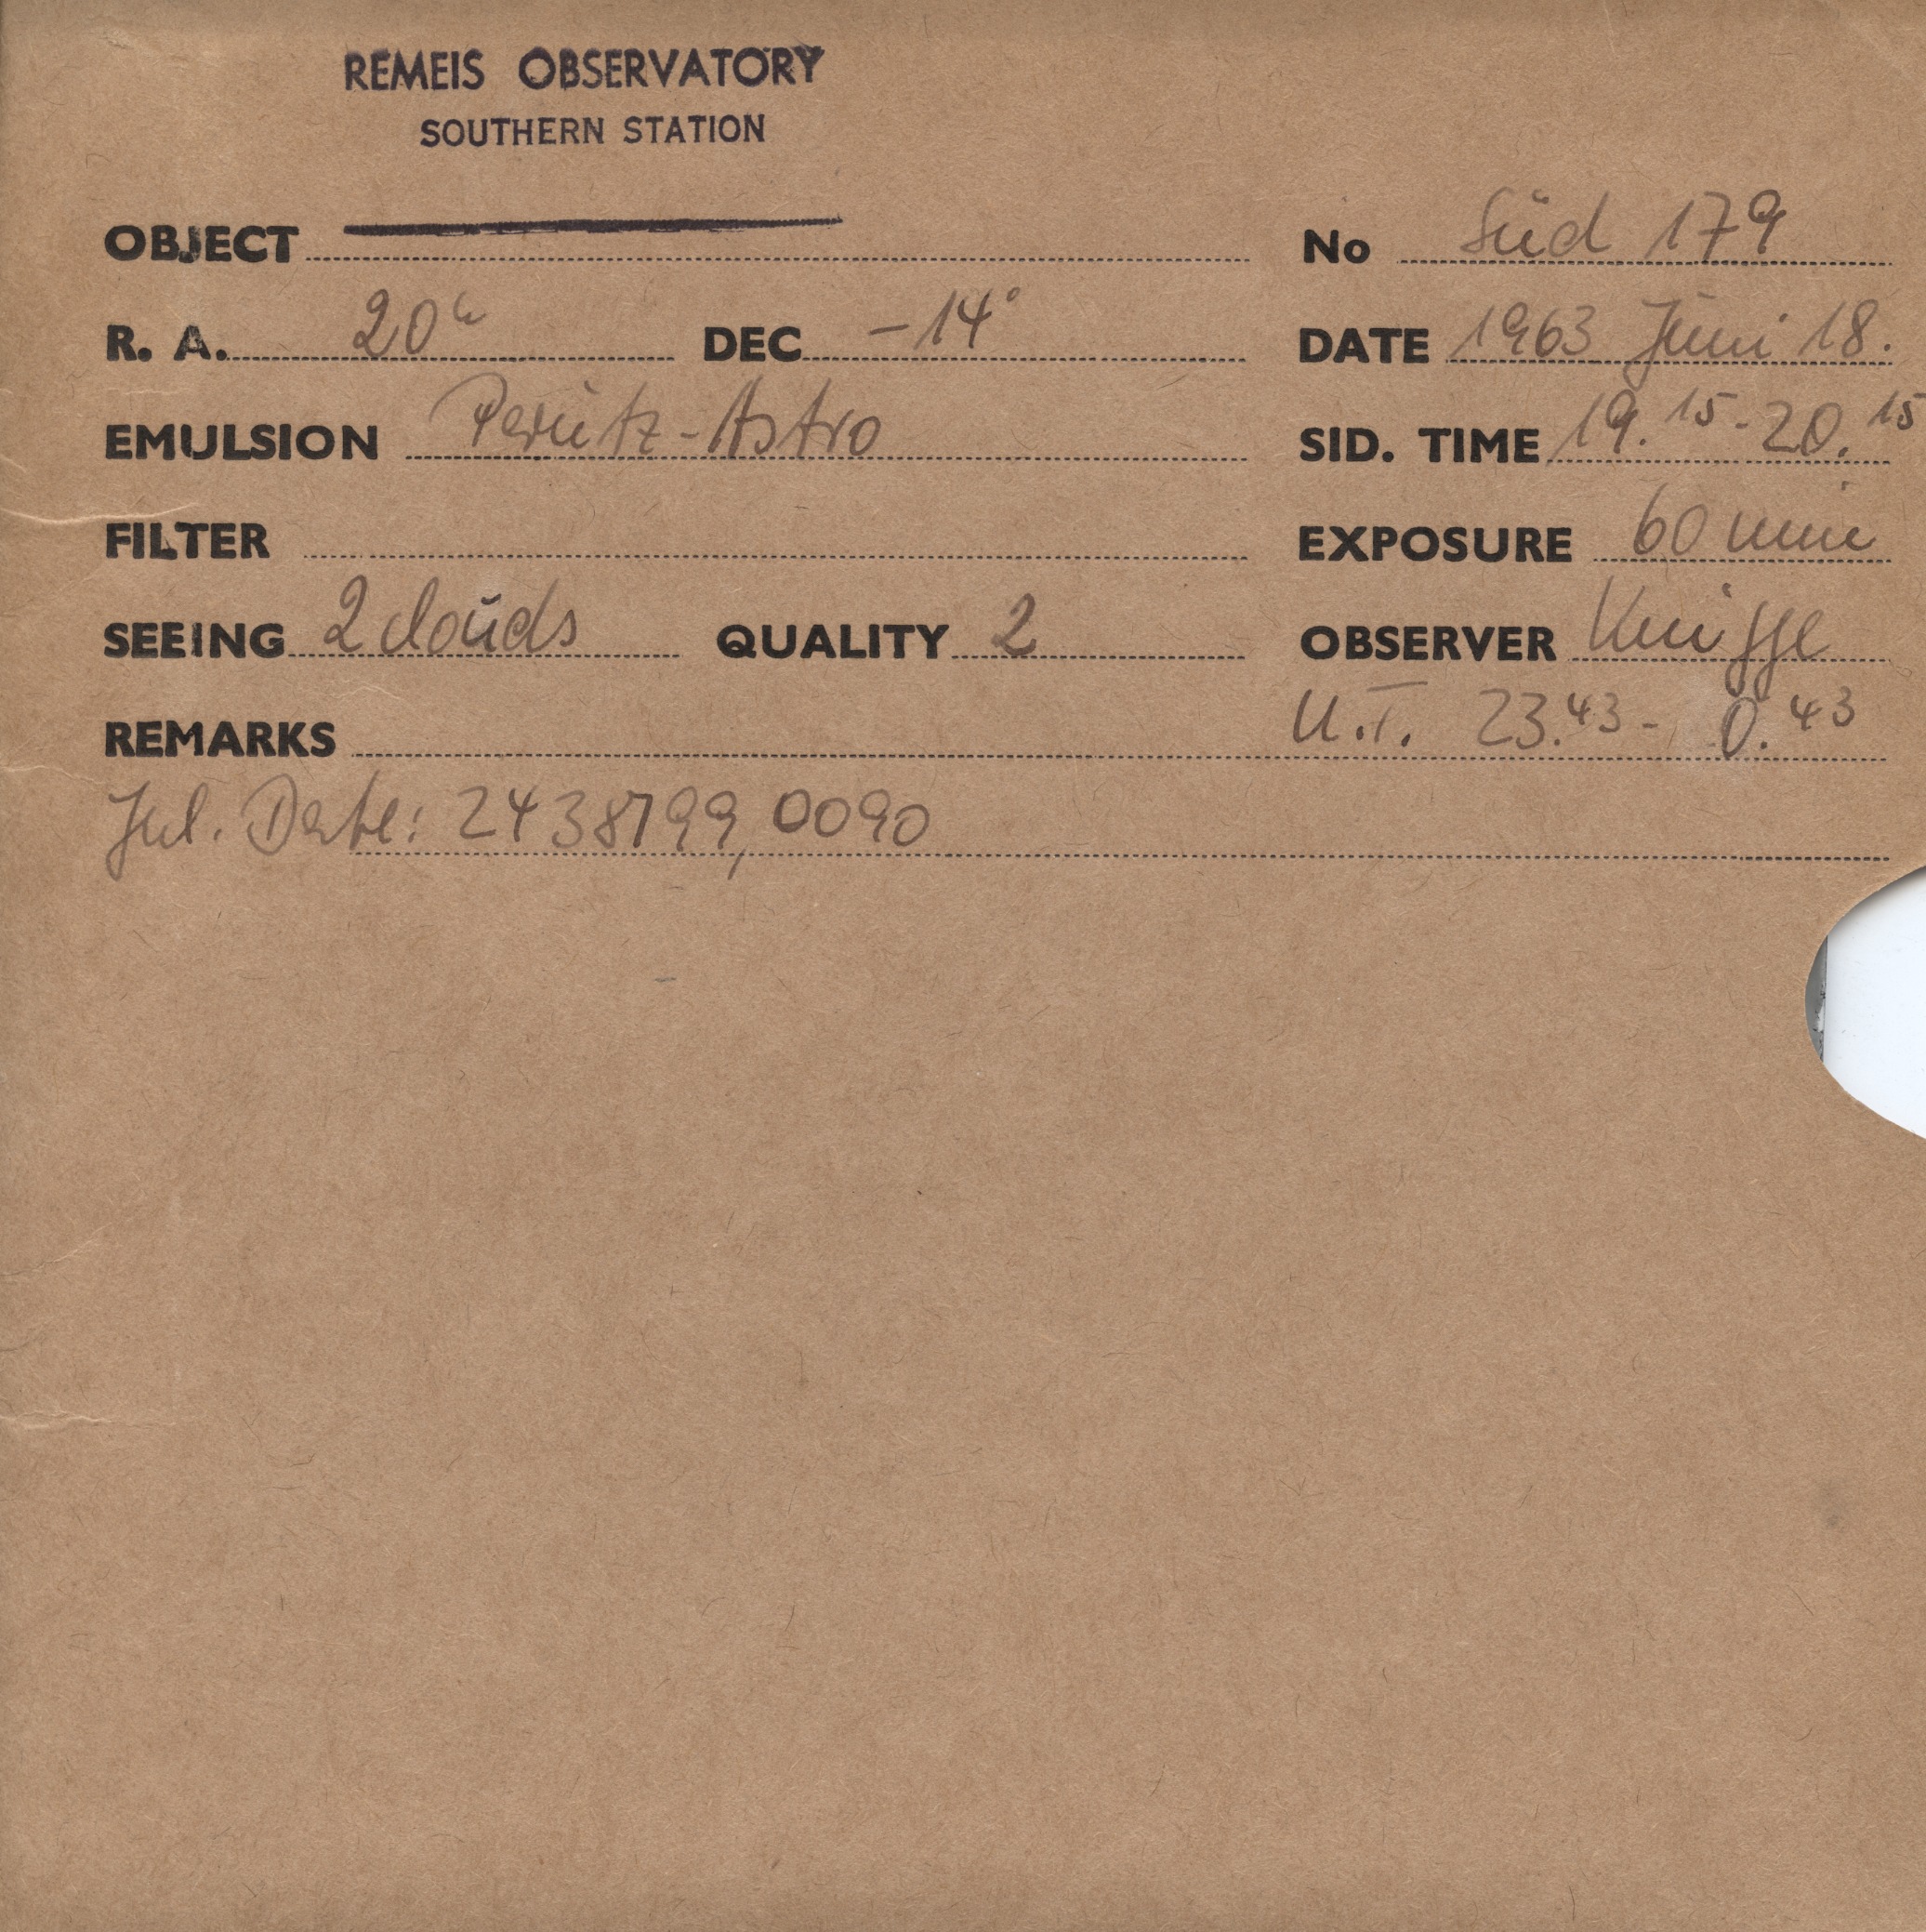 REMEIS OBSERVATORY
SOUTHERN STATION
OBJECT No Süd 179
R. A. 20h DEC -14° DATE 1963 Juni 18.
EMULSION Perutz-Astro SID. TIME 19.15-20.15
FILTER EXPOSURE 60 min
SEEING 2 clouds QUALITY 2 OBSERVER Knigge
REMARKS U.T. 23.43 - 0.43
Jul. Date: 2438199,0090